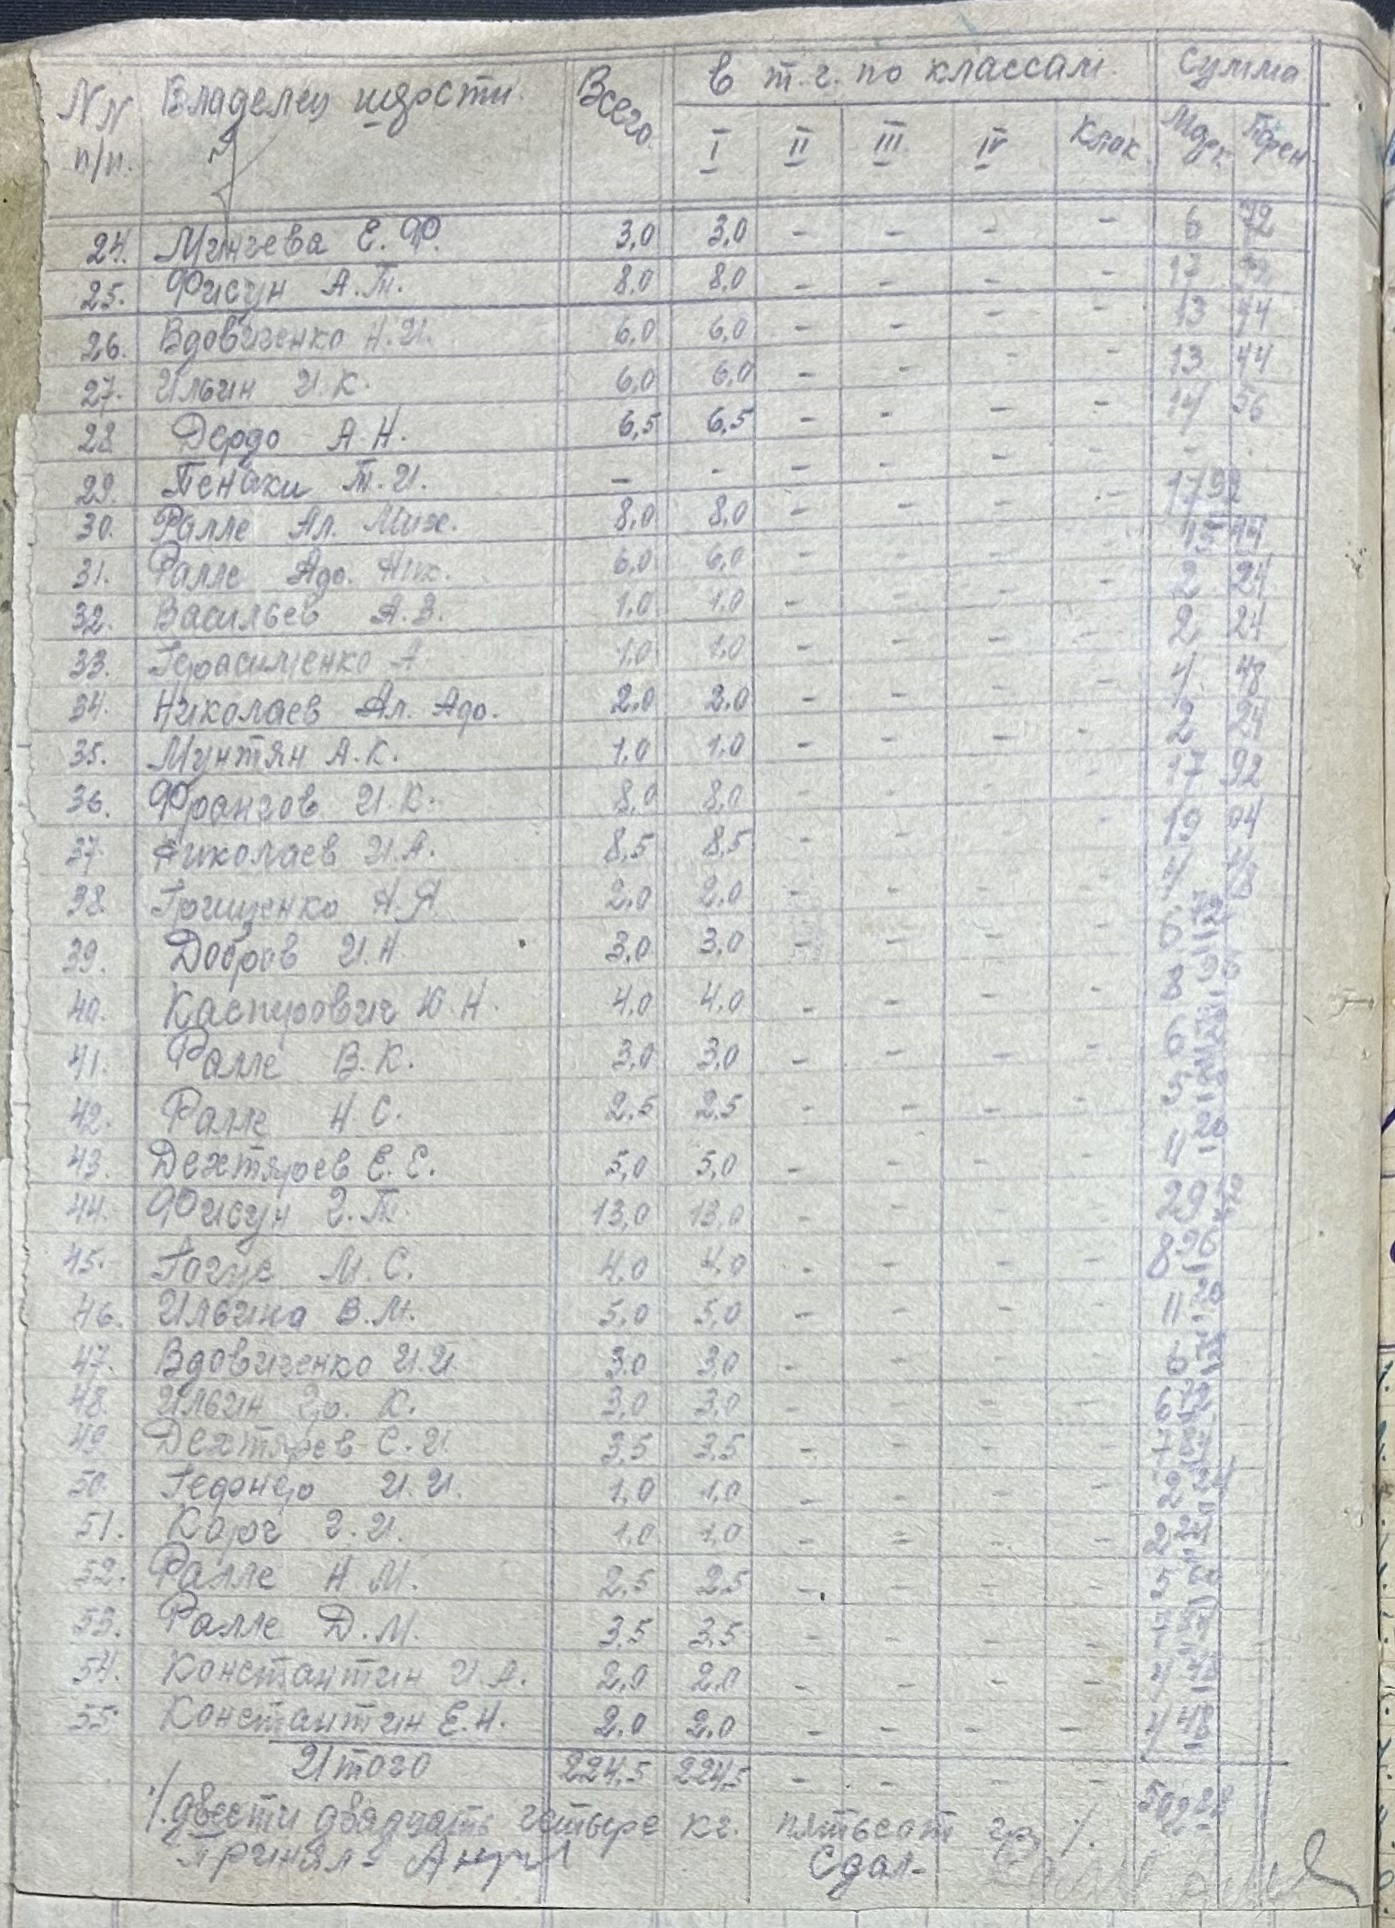 NN п/п. Владелец шерсти Всего в т.ч. по классам Сумма
I II III IV Клок. Марк. Пфен.
24. Мінчева Е. Ф. 3,0 3,0 - - - - 6 72
25. Фисун А.Т. 8,0 8,0 - - - - 17 92
26. Вдовиченко Н.И. 6,0 6,0 - - - - 13 44
27. Ильин И.К. 6,0 6,0 - - - - 13 44
28. Дердо А.Н. 6,5 6,5 - - - - 14 56
29. Т.И. - - - - - - -
30. Ралле Ал. Мих. 8,0 8,0 - - - - 17 92
31. Ралле 6,0 6,0 - - - - 13 44
32. Васильев А.В. 1,0 1,0 - - - - 2 24
33. Герасименко А. 1,0 1,0 - - - - 2 24
34. Николаев Ал. 2,0 2,0 - - - - 4 48
35. Мунтян А.К. 1,0 1,0 - - - - 2 24
36. Франгов И.К. 8,0 8,0 - - - - 17 92
37. Николаев И.А. 8,5 8,5 - - - - 19 04
38. Грищенко Н.Я. 2,0 2,0 - - - - 4 48
39. Добров И.Н. 3,0 3,0 - - - - 6 72
40. Каспирович Ю.Н. 4,0 4,0 - - - - 8 96
41. Ралле В.К. 3,0 3,0 - - - - 6 72
42. Ралле Н.С. 2,5 2,5 - - - - 5
43. Дехтярев Е.Е. 5,0 5,0 - - - - 11 20
44. Фисун Г.Т. 13,0 13,0 - - - - 29
45. М.С. 4,0 4,0 - - - - 8 96
46. Ильина В.М. 5,0 5,0 - - - - 11 20
47. Вдовиченко И.И. 3,0 3,0 - - - - 6 72
48. Ильин К. 3,0 3,0 - - - - 6 72
49. Дехтярев С.И. 3,5 3,5 - - - - 7 84
50. И.И. 1,0 1,0 - - - - 2 24
51. Г.И. 1,0 1,0 - - - - 2 24
52. Ралле Н.М. 2,5 2,5 - - - - 5
53. Ралле Д.М. 3,5 3,5 - - - - 7 84
54. Константин И.А. 2,0 2,0 - - - - 4 48
55. Константин Е.Н. 2,0 2,0 - - - - 4 48
Итого 224,5 224,5 - - - -
/. двести двадцать четыре кг. пятьсот гр. /.
Принял- Сдал-